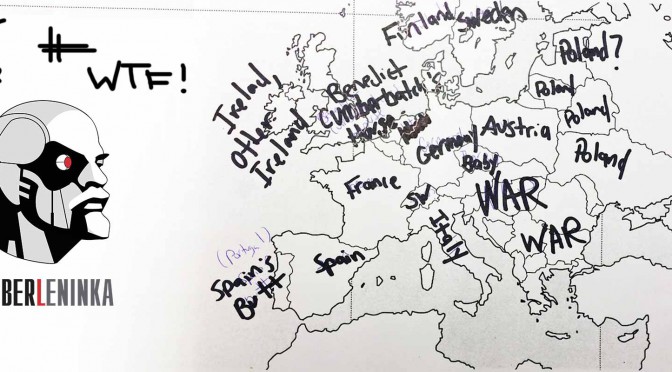 # WTF!
BERLENINKA
Finland
Sweden
Ireland,
Other
Ireland
Benedict
Cumberbatch's
House
Germany
Baby
Austria
Poland?
Poland
Poland
Poland
France
SW
Italy
WAR
WAR
(Portugal)
Spain's
Butt
Spain